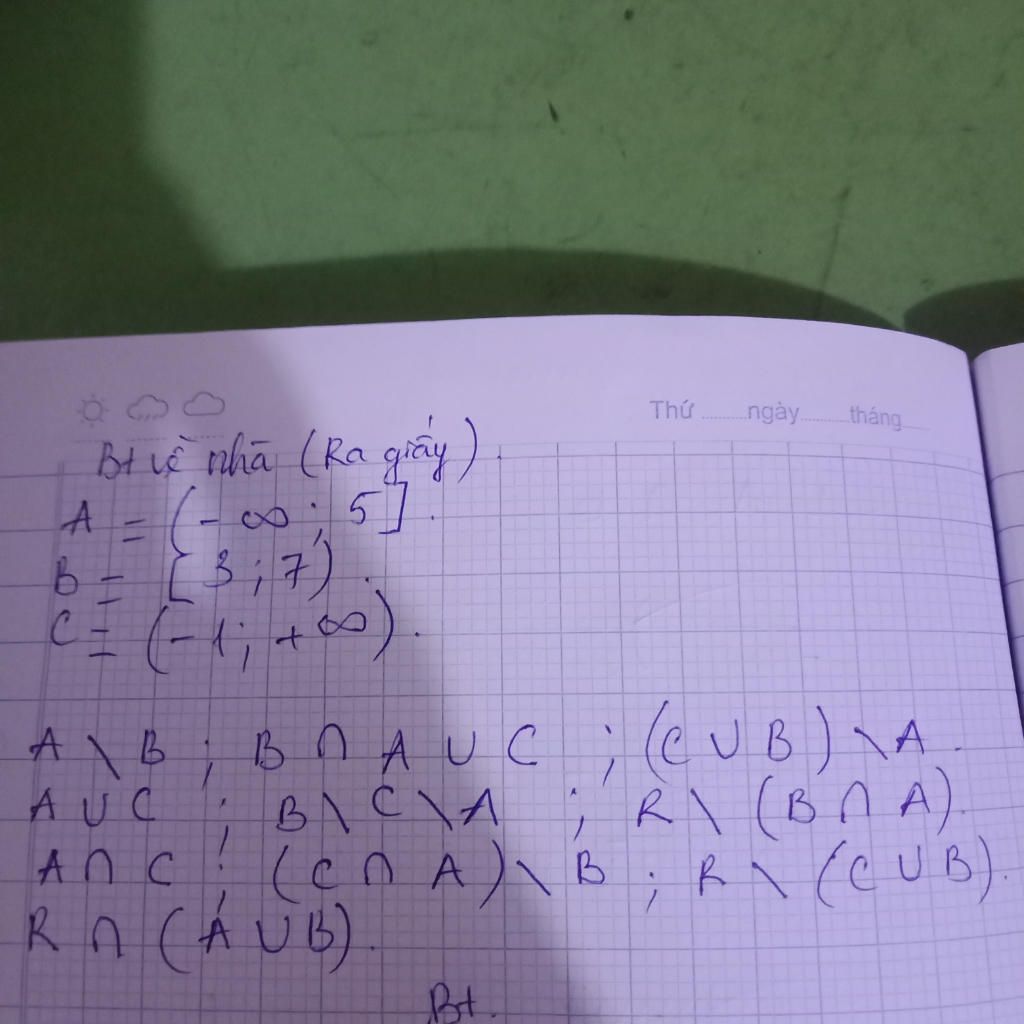 Thứ ........ ngày ........ tháng ........
Bt về nhà (Ra giấy).
A = (-∞; 5].
B = [3; 7).
C = (-1; +∞).
A \ B ; B ∩ A ∪ C ; (C ∪ B) \ A.
A ∪ C ; B \ C \ A ; R \ (B ∩ A).
A ∩ C ; (C ∩ A) \ B ; R \ (C ∪ B).
R ∩ (A ∪ B).
Bt.